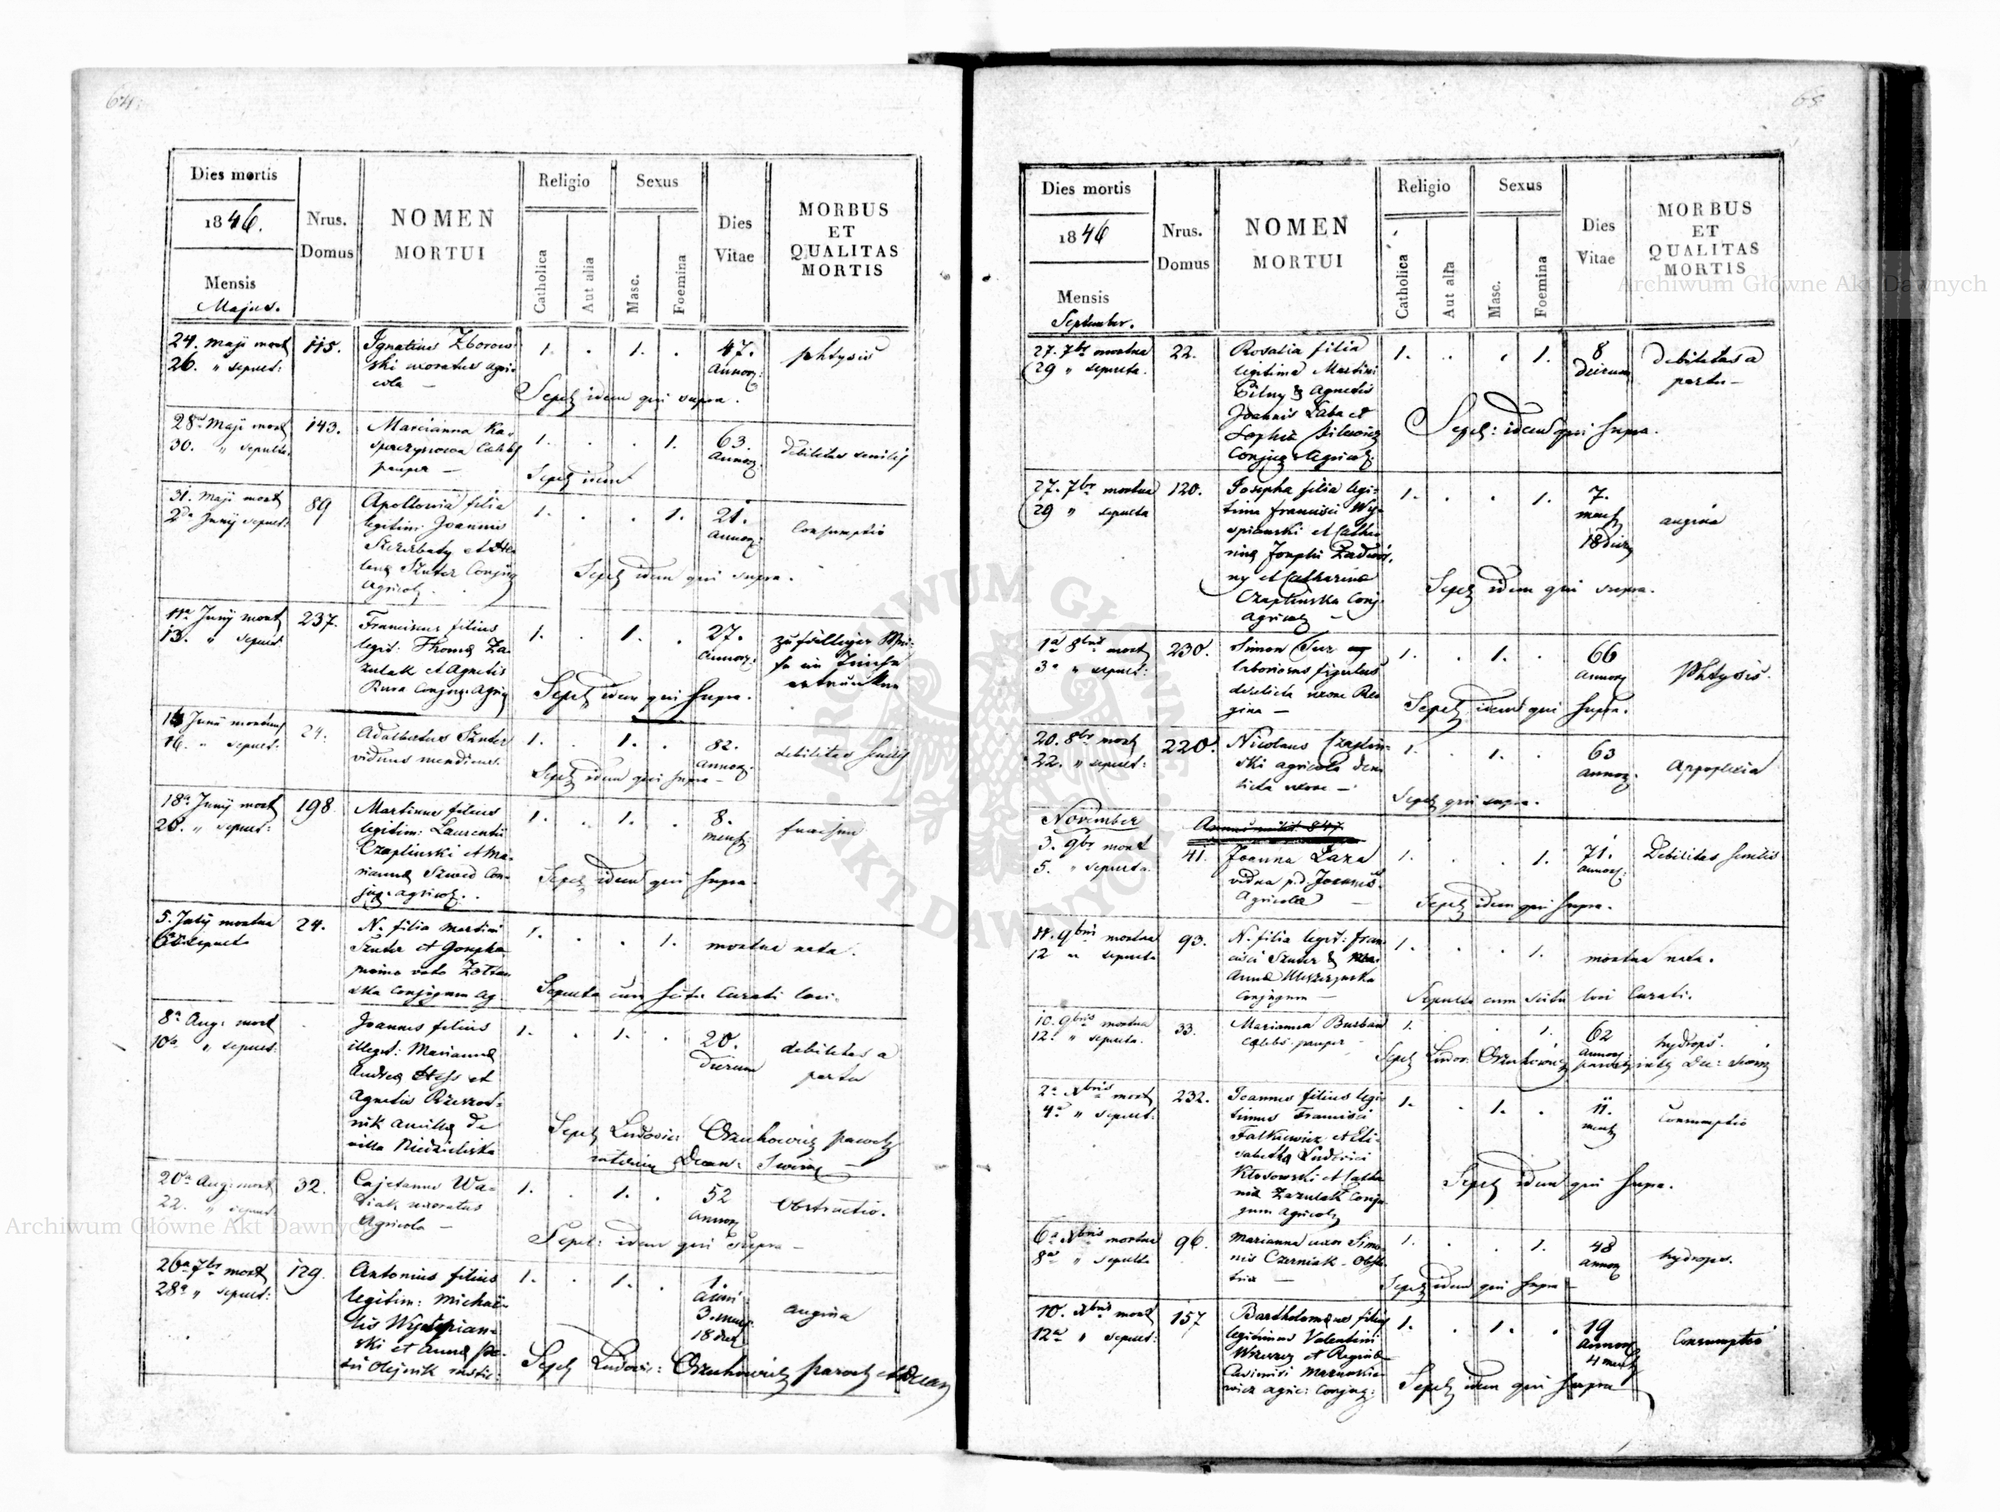 64.
Dies mortis
1846.
Mensis
Majus.
Nrus.
Domus
NOMEN
MORTUI
Religio
Catholica
Aut alia
Sexus
Masc.
Foemina
Dies
Vitae
MORBUS
ET
QUALITAS
MORTIS
24. Maji mort
26. " sepult:
115.
Ignatius Zborow
ski uxoratus agri
cola —
1. . 1. .
47.
Annor:
phtysis
Sepel idem qui supra.
28a Maji mort
30. " sepulta
143.
Marcianna Ka
sprzynowa
pauper —
1. . . 1.
63.
Annor:
debilitas senilis
Sepel idem
31. Maji mort
2da Junÿ sepult:
89
Apollonia filia
legitim: Joannis
Szczerbaty et He
lena Szuter Conjug
Agricol.
1. . . 1.
21.
Annor:
Consumptio
Sepel idem qui supra.
11a Junÿ mort
13. " sepult
237.
Franciscus filius
legit: Thoma Za
zulak et Agnetis
Rura Conjug: Agric
1. . 1. .
27.
Annor:
zufälliger Wei
se im
ertrunken
Sepel idem qui supra.
16. " sepult:
24.
Adalbertus Szuter
viduus mendicus.
1. . 1. .
82.
Annor:
debilitas senilis
Sepel idem qui supra —
18a Junÿ mort
20. " sepult:
198
Martinus filius
legitim: Laurentii
Czaplinski et Ma
rianna Szwed Con
jug. agricol.
1. . 1. .
8.
mens
Sepel idem qui supra.
5. Julÿ mortua
sepulta
24.
N. filia Martini
Szuter et Josepha
primo voto
ska conjugum ag
1. . . 1.
mortua nata.
Sepulta cum scitu Curati loci.
8a Aug: mort
10a " sepult:
Joannes filius
illegit: Marianna
Andrea Hess et
Agnetis
nik ancilla de
villa
1. . 1. .
20.
Dierum
debilitas a
partu
Sepel Ludovic: parochus
Decan:
20a Aug: mort
22. " sepult
32.
Cajetanus Wa
uxoratus
Agricola —
1. . 1. .
52
Annor
Obstructio.
Sepel: idem qui supra —
26a 7br mort
28a " sepult:
129.
Antonius filius
legitim: Michaë
lis Wyspian
ski et Anna
Olejnik
1. . 1. .
1.
anni
3. mens
18 dier
angina
Sepel Ludovic: paroch et Decan
65
Dies mortis
1846
Mensis
September.
Nrus.
Domus
NOMEN
MORTUI
Religio
Catholica
Aut alia
Sexus
Masc.
Foemina
Dies
Vitae
MORBUS
ET
QUALITAS
MORTIS
27. 7br mortua
29 " sepulta
22.
Rosalia filia
legitima Martini
Bilny & Agnetis
Joannis Laba et
Sophia
Conjug Agricol:
1. . . 1.
8
Dierum
debilitas a
partu —
Sepel: idem qui supra.
27. 7br mortua
29 " sepulta
120.
Josepha filia legi
tima Francisci Wy
spianski et Catha
rina Josephi
ny et Catharina
Czaplinska Conj.
Agricol —
1. . . 1.
7.
mens
18 dier
angina
Sepel idem qui supra.
1a 8bris mort
3a " sepult:
230.
Simon
laboriosus figulus
derelicta uxore Re
gina —
1. . 1. .
66
Annor
Phtysis.
Sepel idem qui supra.
20. 8br mort
22. " sepult:
220.
Nicolaus Czaplin
ski agricola dere
licta uxore —
1. . 1. .
63
annor:
Appoplexia
Sepel qui supra.
November
3. 9br mort
5. " sepulta.
41.
Joanna Laza
vidua p.d Joannis
Agricola —
1. . . 1.
71.
annor:
Debilitas senilis
Sepel idem qui supra.
11. 9bris mortua
12 " sepulta
93.
N. filia legit: Fran
cisci Szuter &
Anna
Conjugum —
1. . . 1.
mortua nata.
Sepulta cum scitu loci Curati.
10. 9bris mortua
12. " sepulta.
33.
Marianna Burban
pauper —
1. . . 1.
62
annor
hydrops.
Sepel Ludov:
2a Xbris mort
4a " sepult:
232.
Joannes filius legi
timus Francisci
Falkiewicz et Eli
sabetha Ludovici
Klosowski et Catha
rina Zazulak Conju
gum agricol
1. . 1. .
11.
mens
Consumptio
Sepel idem qui supra.
6a Xbris mortua
8a " sepulta
96.
Marianna uxor Simo
nis Czerniak —
1. . . 1.
48
annor
hydrops.
Sepel idem qui supra —
10. Xbris mort
12a " sepult:
157
Bartholomæus filius
legitimus Valentini
et Regina
Casimiri
agric: Conjug:
1. . 1. .
19
Annor
4 mens
Consumptio
Sepel idem qui supra
Archiwum Główne Akt Dawnych
Archiwum Główne Akt Dawnych
ARCHIWUM GŁÓWNE AKT DAWNYCH